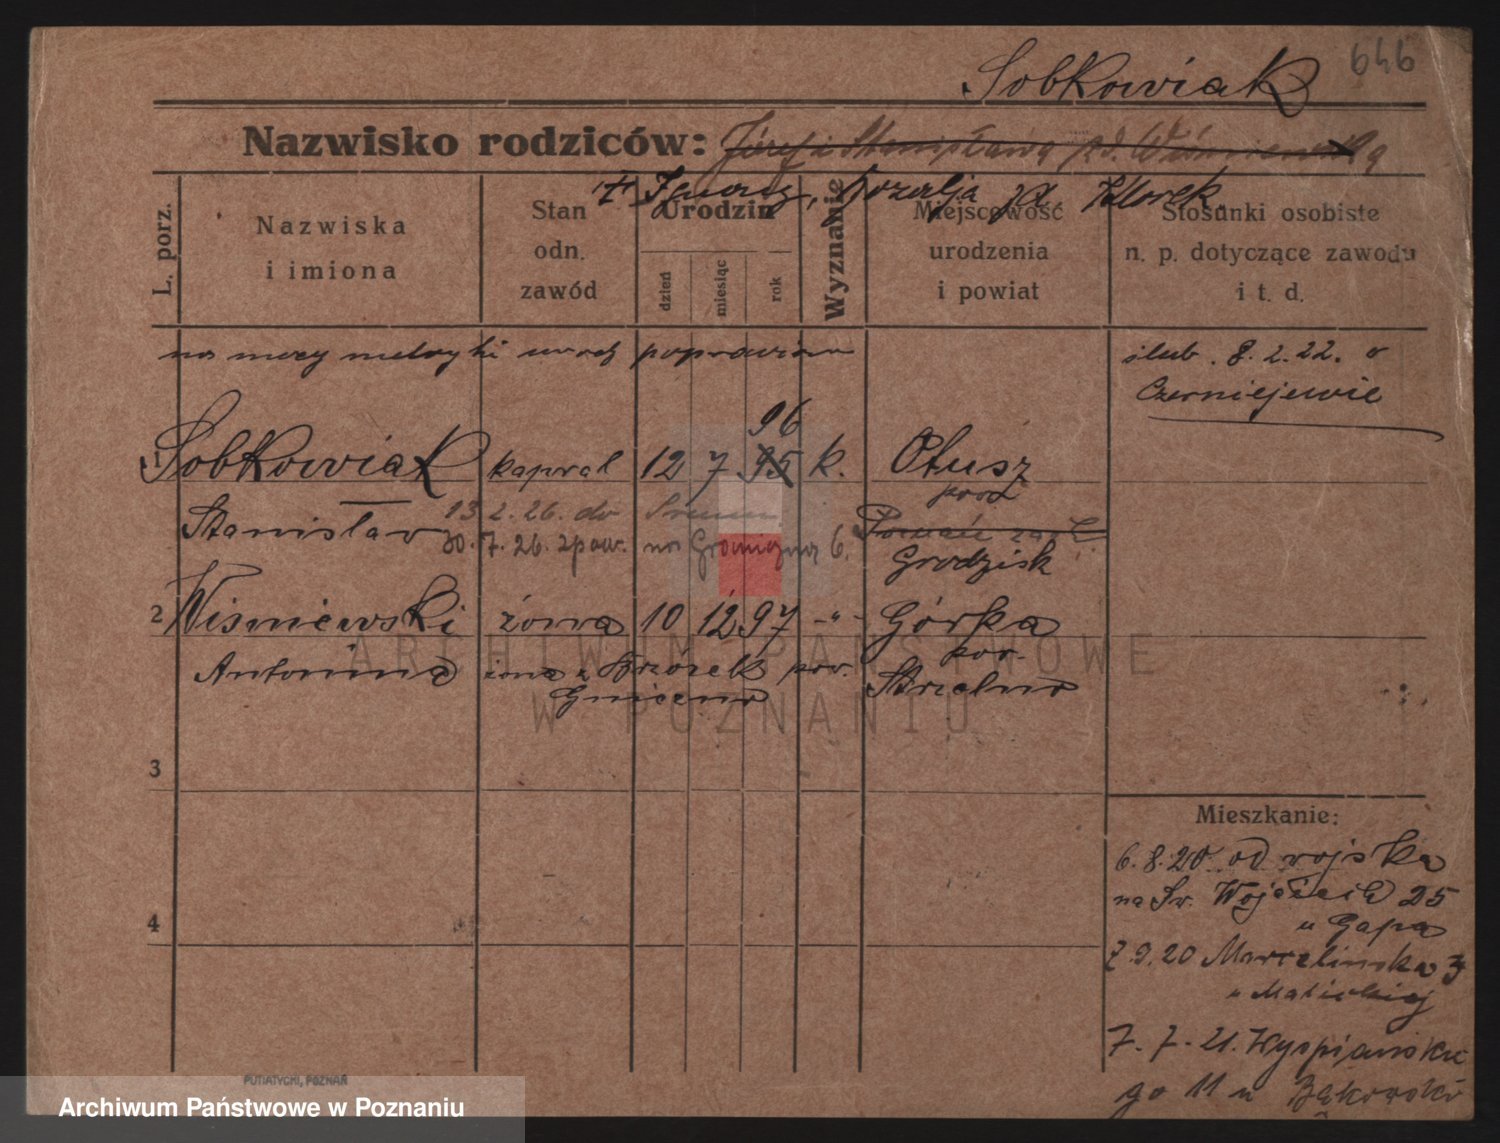 646
Sobkowiak
Nazwisko rodziców: Józef i Stanisława zd. Wiśniewska
Ignacy, Rozalja zd.
L. porz.
Nazwiska
i imiona
Stan
odn.
zawód
Urodzin
dzień
miesiąc
rok
Wyznanie
Miejscowość
urodzenia
i powiat
Stosunki osobiste
n. p. dotyczące zawodu
i t. d.
na mocy metryki urodz poprawiono
ślub. 8. 2. 22. w
Czerniejewie
96
Sobkowiak kapral 12 7 95 k. Otusz
pow
Stanisław 13. 2. 26. do Śremu
30. 7. 26. zpow. na Graniczną 6.
Grodzisk
2 Wisniewski żona 10 12 97 -"- Górka
pow.
Antonina żona z Brzozek pow. Strzelno
Gniezno
3
4
Mieszkanie:
6. 8. 20 od wojska
na Św. Wojciech 25
u Gapa
7. 9. 20 Marcelińska 3
u
7. 7. 21. Wyspiańskie
go 11 u Bąkowski
PUTIATYCKI, POZNAŃ
ARCHIWUM PAŃSTWOWE
W POZNANIU
Archiwum Państwowe w Poznaniu